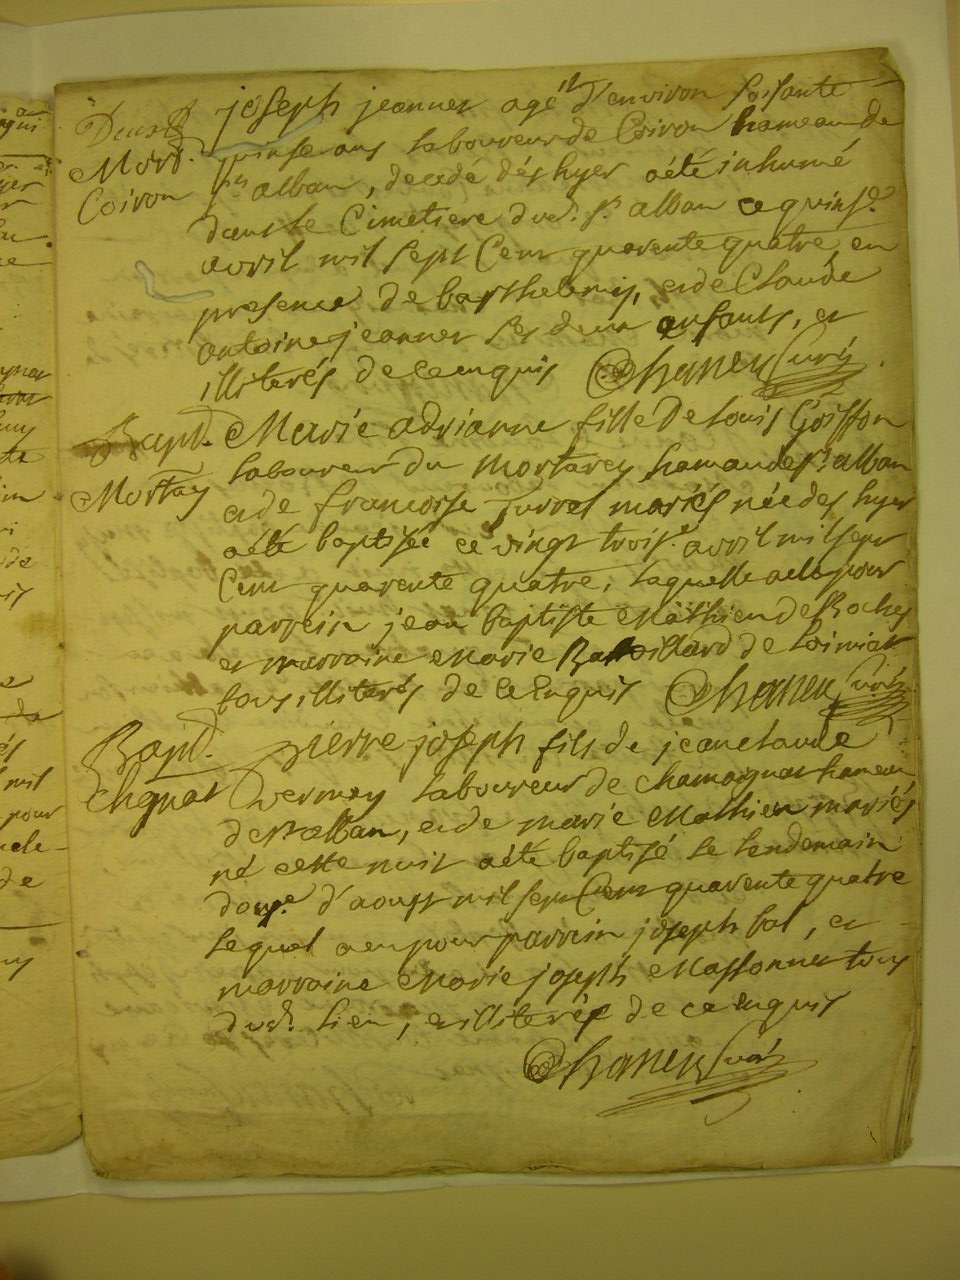 Mort.
Coiron
joseph jeannet agé d'environ soisante
quinse ans laboureur de Coiron hameau de
St alban, decedé dés hyer a été inhumé
dans le Cimetiere dud. St alban ce quinse.
avril mil sept Cent quarente quatre en
presence de barthelemy, et de Claude
antoine jeannet ses deux enfants, et
illiterés de ce enquis Chanen Curé
Bapt.
Mortay
Marie adrianne fille De Louis Goiffon
laboureur du Mortarey hamau de St alban
et de francoise Turrel mariés née des hyer
a été baptisée ce vingt trois. avril mil sept
Cent quarente quatre, laquelle a eu pour
parrein jean baptiste Mathieu de Roches
et marraine Marie de
tous illiterés de ce Enquis Chanen Curé
Bapt.
Chgnat
pierre joseph fils de jean claude
Vernay laboureur de Chamagnat hameau
de St alban, et de marie Mathieu mariés
né cette nuit a été baptisé le lendemain
douse. d'aoust mil sept Cent quarente quatre
lequel a eu pour parrein joseph bal, et
marraine Marie joseph Massonnet tous
dud. lieu, et illiterés de ce enquis
Chanen Curé